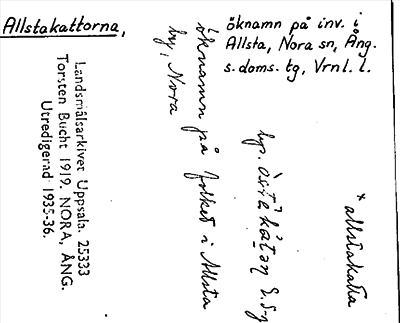 Allstakattorna,
öknamn på inv. i
Allsta, Nora sn, Ång.
s. doms. tg, Vrnl. l.
* allstakatta
hp.
öknamn på folket i Allsta
by, Nora
Landsmålsarkivet Uppsala. 25333
Torsten Bucht 1919. NORA, ÅNG.
Utredigerad 1935-36.